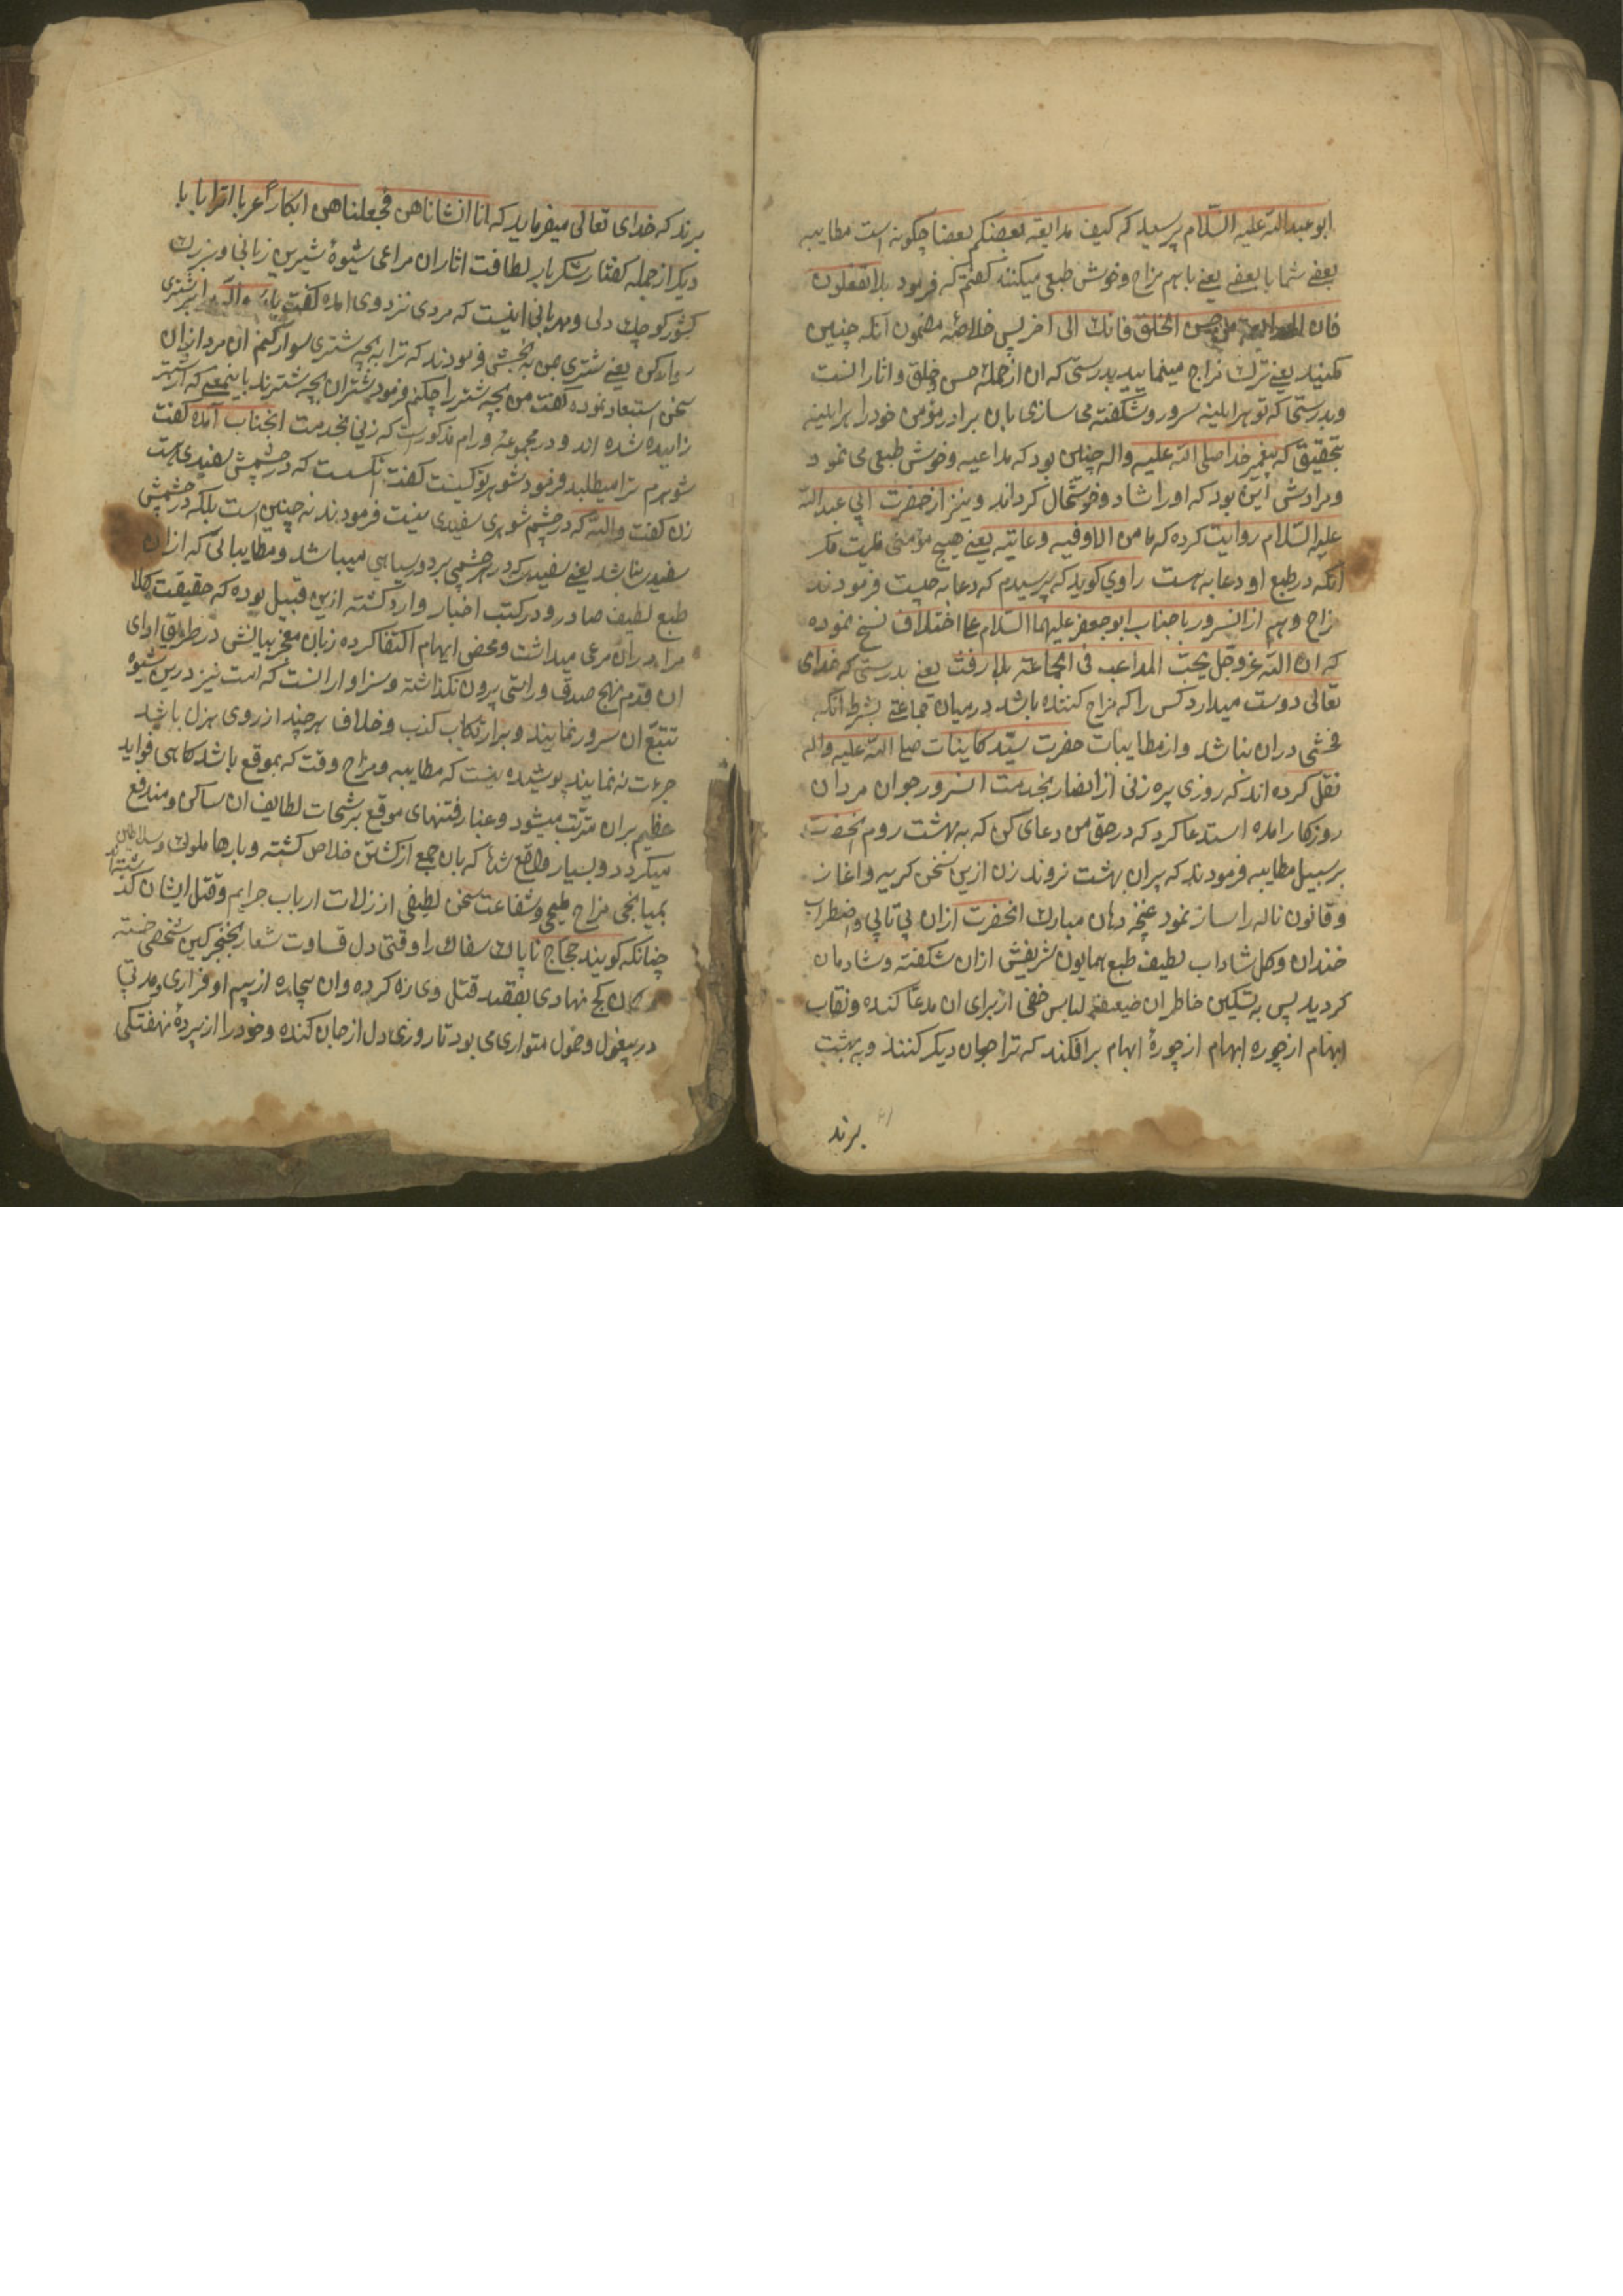 ابو عبدالله علیه السلام پرسید که کیف مداعبة بعضکم بعضا چکونه است مطایبه
بعضے شما با بعضے یعنے با هم مزاح و خوش طبعی میکنند کفتم که فرمود بلا تفعلون
فان المداعبة من حسن الخلق فانك الی اخر پس خلاصهٔ مضمون آنکه چنین
مکنید یعنے ترك مزاج مینمایید بدرستی که ان از جمله حسن خلق و اثار انست
و بدرستی که تو هر اینه سرور و شکفته می سازی بان برادر مؤمن خود را هر اینه
بتحقیق که پیغمبر خدا صلی الله علیه واله چنین بود که مداعبه و خوش طبعی می نمود
و مرادش این بود که او را شاد و خوشحال کرداند و نیز از حضرت ابی عبدالله
علیه السلام روایت کرده که ما من الا و فیه دعابته یعنے هیچ مؤمنی نیست مکر
انکه در طبع او دعابه هست راوی کوید که پرسیدم که دعابه چیست فرمودند
مزاح و هم از انسرور یا جناب ابو جعفر علیهما السلام علی اختلاف نسخ نموده
که ان الله عز وجل یحب المداعب فی الجماعة بلا رفث یعنے بدرستی که خدای
تعالی دوست میدارد کس را که مزاح کننده باشد در میان جماعتے بشرط انکه
فحشی دران نباشد و از مطایبات حضرت سید کاینات صلی الله علیه واله
نقل کرده اند که روزی پیره زنی از انصار بخدمت انسرور جوان مردان
روزکار امده استدعا کرد که در حق من دعای کن که به بهشت روم انحضرت
بر سبیل مطایبه فرمودند که پیران بهشت نروند زن ازین سخن کریه و اغاز
و قانون ناله را ساز نمود غنچه دهان مبارك انحضرت ازان بی تابی و اضطراب
خندان و کل شاداب لطیف طبع همایون شریفش ازان شکفته و شادمان
کردید پس به تسکین خاطر ان ضعیفه لباس خفی از برای ان مدعا کنده و نقاب
ابهام از چهره ابهام برافکند که ترا جوان دیکر کنند و به بهشت
برند
برند که خدای تعالی میفرماید که انا انشاناهن فجعلناهن ابکاراً عربا اترابا با
دیکر از جمله کفتار شکربار لطافت اثار ان مراعی شیوهٔ شیرین زبانی و بزرك
کشور کوچك دلی و مهربانی اینست که مردی نزد وی امده کفت یا رسول الله مرا بر شتری
سوار کن یعنے شتری بمن به بخش فرمودند که ترا به بچه شتری سوار کنم ان مرد ازان
سخن استبعاد نموده کفت من بچه شتر را چکنم فرمود شتران بچه شترند باینمعنے که از شتر
زاییده شده اند و در مجموعه ورام مذکورست که زنی بخدمت انجناب آمده کفت
شوهرم ترا میطلبد فرمود شوهر تو کیست کفت انکست که در چشمش سفیدی هست
زن کفت والله که در چشم شوهری سفیدی نیست فرمودند نه چنین است بلکه در چشمش
سفیدی باشد یعنے سفیدی که در هر چشمی بر دور سیاهی میباشد و مطایباتی که از ان
طبع لطیف صادر و در کتب اخبار وارد کشته ازین قبیل بوده که حقیقت کلا
مرا دران مرعی میداشت و محض ایهام اکتفا کرده زبان معجز بیانش در طریق ادای
ان قدم از نهج صدق و راستی بیرون نکذاشته و سزاوار انست که امت نیز درین شیوه
تتبع ان سرور نمایند و بر ارتکاب کذب و خلاف هر چند از روی هزل باشد
جرءت نه نمایند پوشیده نیست که مطایبه و مزاح وقت که بموقع باشد کاهی فواید
عظیم بران مترتب میشود و غبار فتنهای موقع برشحات لطایف ان ساکن و مندفع
میکردد و بسیار واقع شده که بان جمع از کشتن خلاص کشته و بارها ملوك و سلاطین
بمیانجی مزاح ملیحی و شفاعت سخن لطیفی از زلات ارباب جرایم و قتل ایشان کذشته اند
چنانکه کویند حجاج ناپاك سفاك را وقتی دل قساوت شعار بخنجر کین شخصی خسته
کمان کج نهادی بقصد قتل وی زه کرده وان بیچاره از بیم او فراری و مدتی
در بیغول و خمول متواری می بود تا روزی دل از جان کنده و خود را از پردهٔ نهفتکی